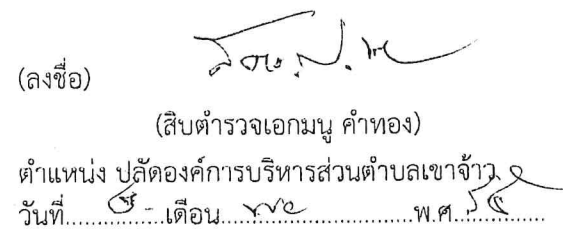 (ลงชื่อ)
(สิบตำรวจเอกมนู คำทอง)
ตำแหน่ง ปลัดองค์การบริหารส่วนตำบลเขาจ้าว
วันที่...............เดือน...............................พ.ศ...............